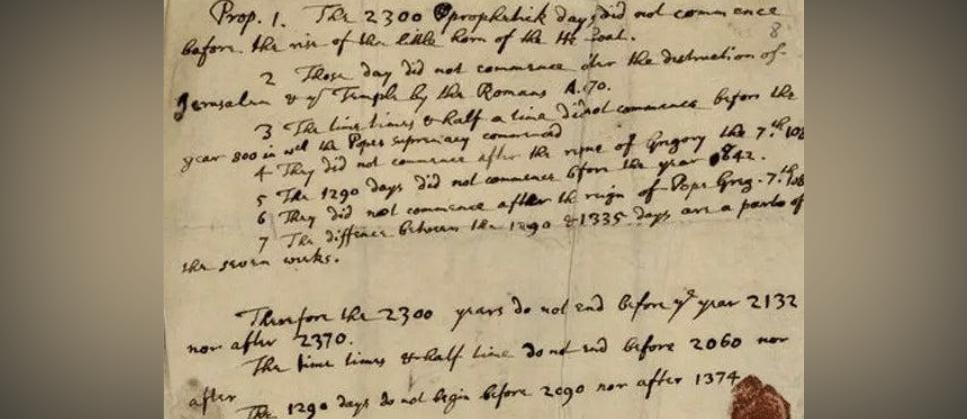 Prop. 1. The 2300 prophetick days did not commence
before the rise of the little horn of the He Goat.
8
2 Those day did not commence after the destruction of
Jerusalem & yᵉ Temple by the Romans A. 70.
3 The time times & half a time did not commence before the
year 800 in wch the Popes supremacy commenced
4 They did not commence after the reigne of Gregory the 7th. 108
5 The 1290 days did not commence before the year 842.
6 They did not commence after the reign of Pope Greg. 7th. 108
7 The diffence between the 1290 & 1335 days are a parts of
the seven weeks.
Therefore the 2300 years do not end before yᵉ year 2132
nor after 2370.
The time times & half time do not end before 2060 nor
after
The 1290 days do not begin before 2090 nor after 1374